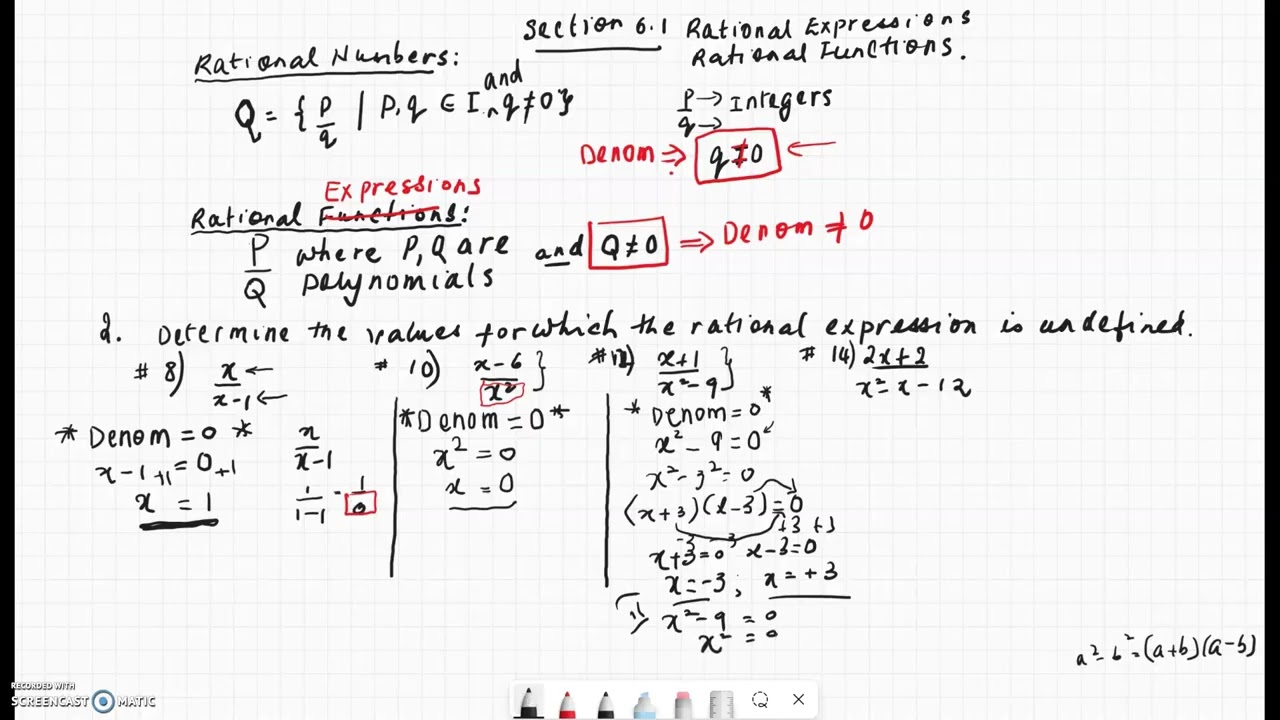 Section 6.1 Rational Expressions
Rational Functions.
Rational Numbers:
Q = { P/q | P, q ∈ I and q ≠ 0 }
P → Integers
q →
Denom ⇒ q ≠ 0 ←
Expressions
Rational Functions:
P/Q where P, Q are polynomials and Q ≠ 0 ⇒ Denom ≠ 0
2. Determine the values for which the rational expression is undefined.
# 8) x/(x-1)
* Denom = 0 *
x-1+1 = 0+1
x = 1
x/(x-1)
1/(1-1) = 1/0
# 10) (x-6)/x²
* Denom = 0 *
x² = 0
x = 0
# 12) (x+1)/(x²-9)
* Denom = 0 *
x² - 9 = 0
x² - 3² = 0
(x+3)(x-3) = 0
+3 +3
-3 -3
x+3=0 x-3=0
x=-3 ; x=+3
x²-9 = 0
x² = 0
# 14) (2x+2)/(x²-x-12)
a²-b²=(a+b)(a-b)
RECORDED WITH
SCREENCAST MATIC